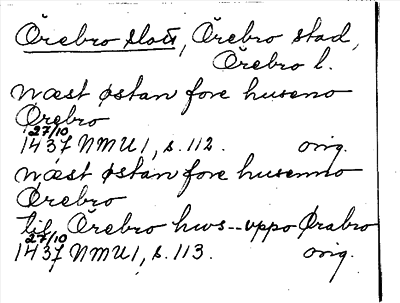 Örebro slott, Örebro stad,
Örebro l.
næst østan fore huseno
Ørebro
27/10
1437 NMU 1, s. 112. orig.
næst østan fore husenno
Örebro
til Örebro hws -- uppo Ørabro
27/10
1437 NMU 1, s. 113. orig.